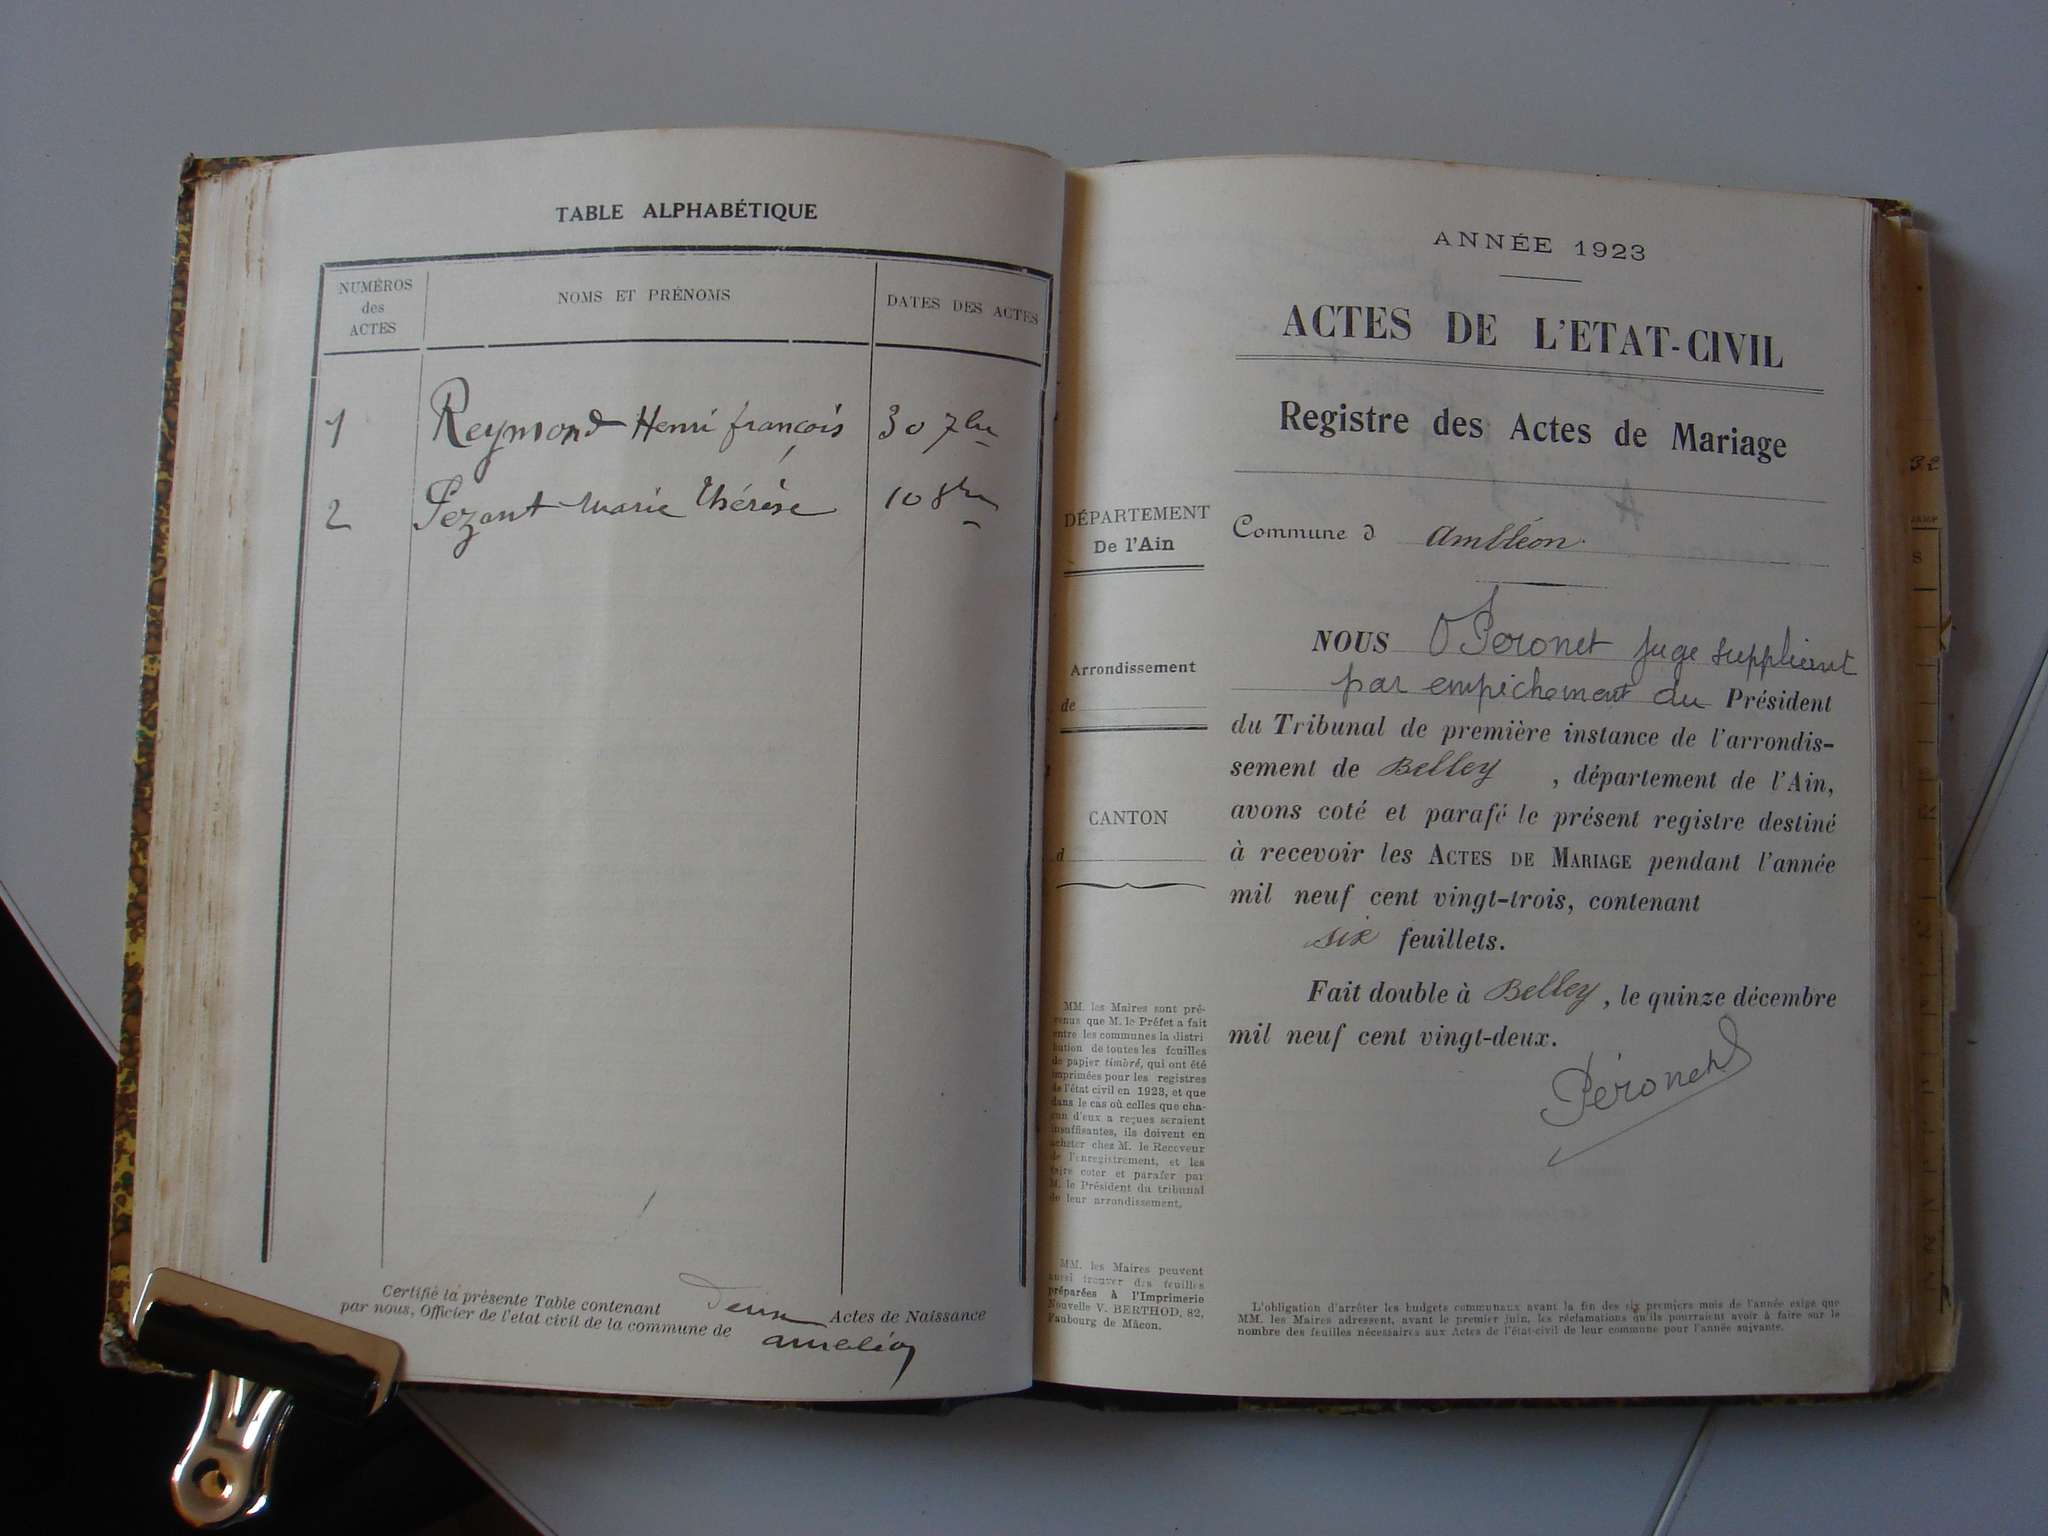 TABLE ALPHABÉTIQUE
NUMÉROS
des
ACTES
NOMS ET PRÉNOMS
DATES DES ACTES
1 Reymond Henri françois 30 7bre
2 Pezant marie thérèse 10 8bre
Certifié la présente Table contenant deux Actes de Naissance
par nous, Officier de l'etat civil de la commune de ambléon
ANNÉE 1923
ACTES DE L'ETAT-CIVIL
Registre des Actes de Mariage
DÉPARTEMENT
De l'Ain
Arrondissement
de
CANTON
d
MM. les Maires sont pré-
venus que M. le Préfet a fait
entre les communes la distri
bution de toutes les feuilles
de papier timbré, qui ont été
imprimées pour les registres
de l'état civil en 1923, et que
dans le cas où celles que cha-
cun d'eux a reçues seraient
insuffisantes, ils doivent en
acheter chez M. le Receveur
de l'enregistrement, et les
faire coter et parafer par
M. le Président du tribunal
de leur arrondissement.
MM. les Maires peuvent
aussi trouver des feuilles
préparées à l'Imprimerie
Nouvelle V. BERTHOD, 82,
Faubourg de Mâcon.
Commune d Ambléon
NOUS Peronet juge suppléant
par empêchement du Président
du Tribunal de première instance de l'arrondis-
sement de Belley , département de l'Ain,
avons coté et parafé le présent registre destiné
à recevoir les ACTES DE MARIAGE pendant l'année
mil neuf cent vingt-trois, contenant
six feuillets.
Fait double à Belley, le quinze décembre
mil neuf cent vingt-deux.
Péronet
L'obligation d'arrêter les budgets communaux avant la fin des six premiers mois de l'année exige que
MM. les Maires adressent, avant le premier juin, les réclamations qu'ils pourraient avoir à faire sur le
nombre des feuilles nécessaires aux Actes de l'état-civil de leur commune pour l'année suivante.